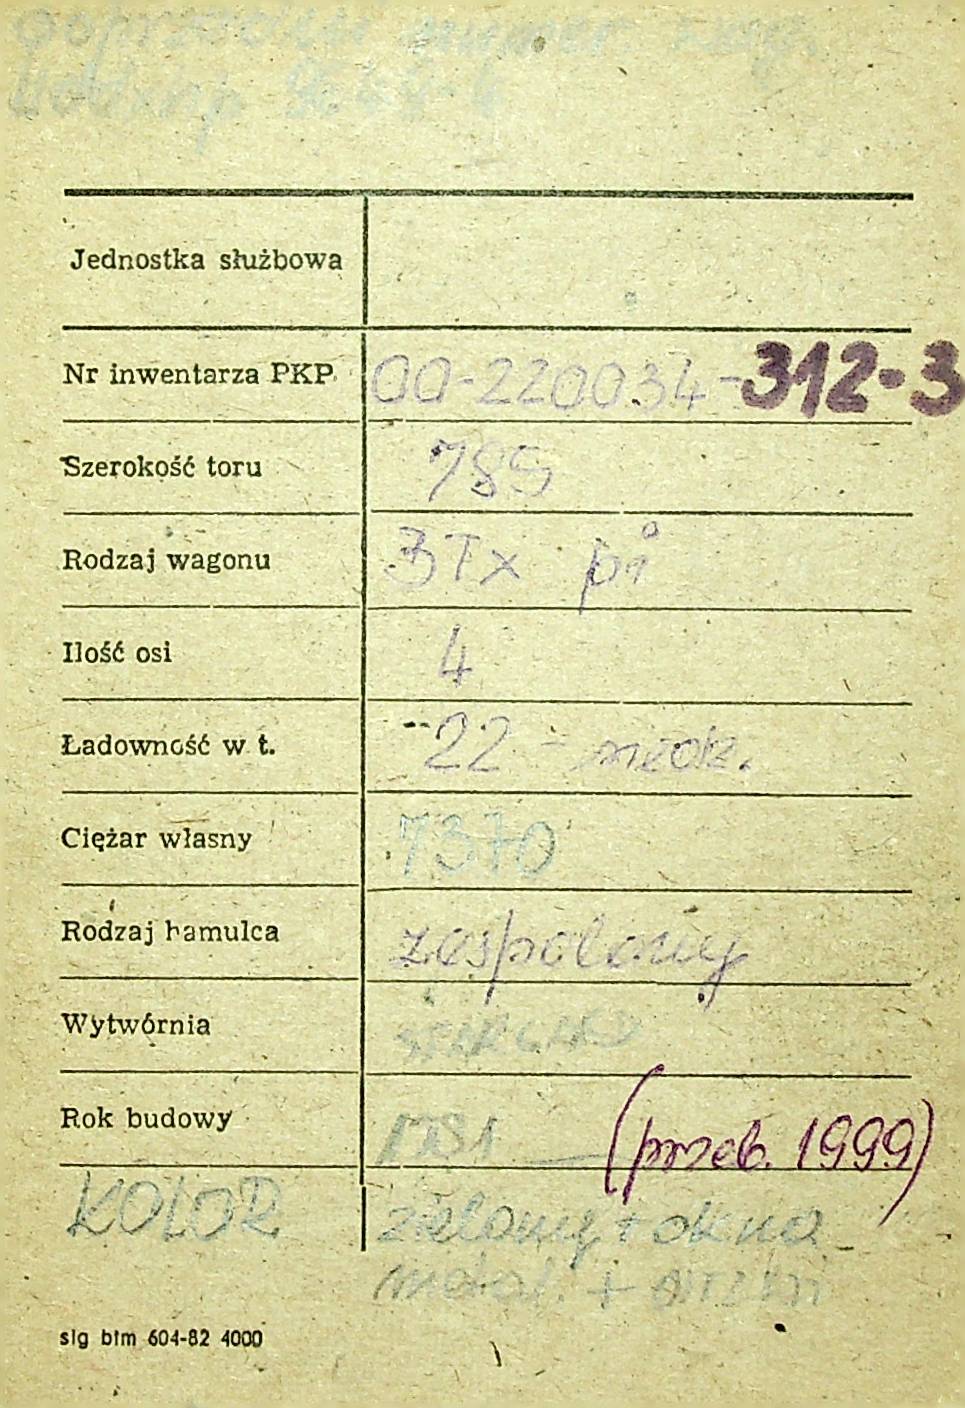 poprzedni numer
Jednostka służbowa
Nr inwentarza PKP 00-220034-312-3
Szerokość toru 785
Rodzaj wagonu 3Tx
Ilość osi 4
Ładowność w t. 22
Ciężar własny 7370
Rodzaj hamulca zespolony
Wytwórnia
Rok budowy (przeb. 1999)
KOLOR zielony + okna
slg btm 604-82 4000